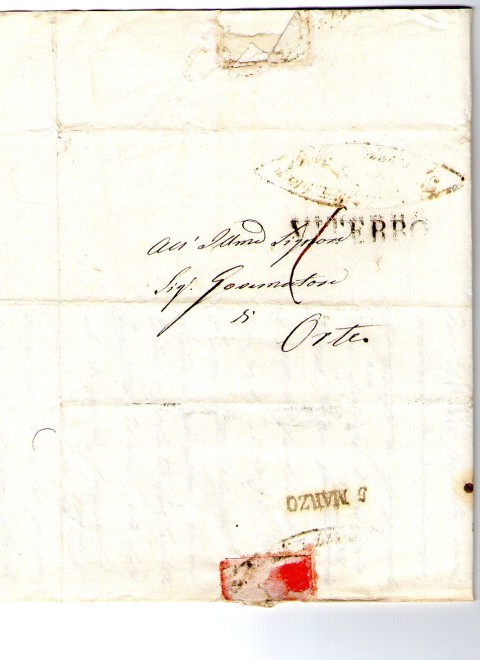 VITERBO
All' Illmo Signore
Sig.r Governatore
di
Orte.
5 MARZO